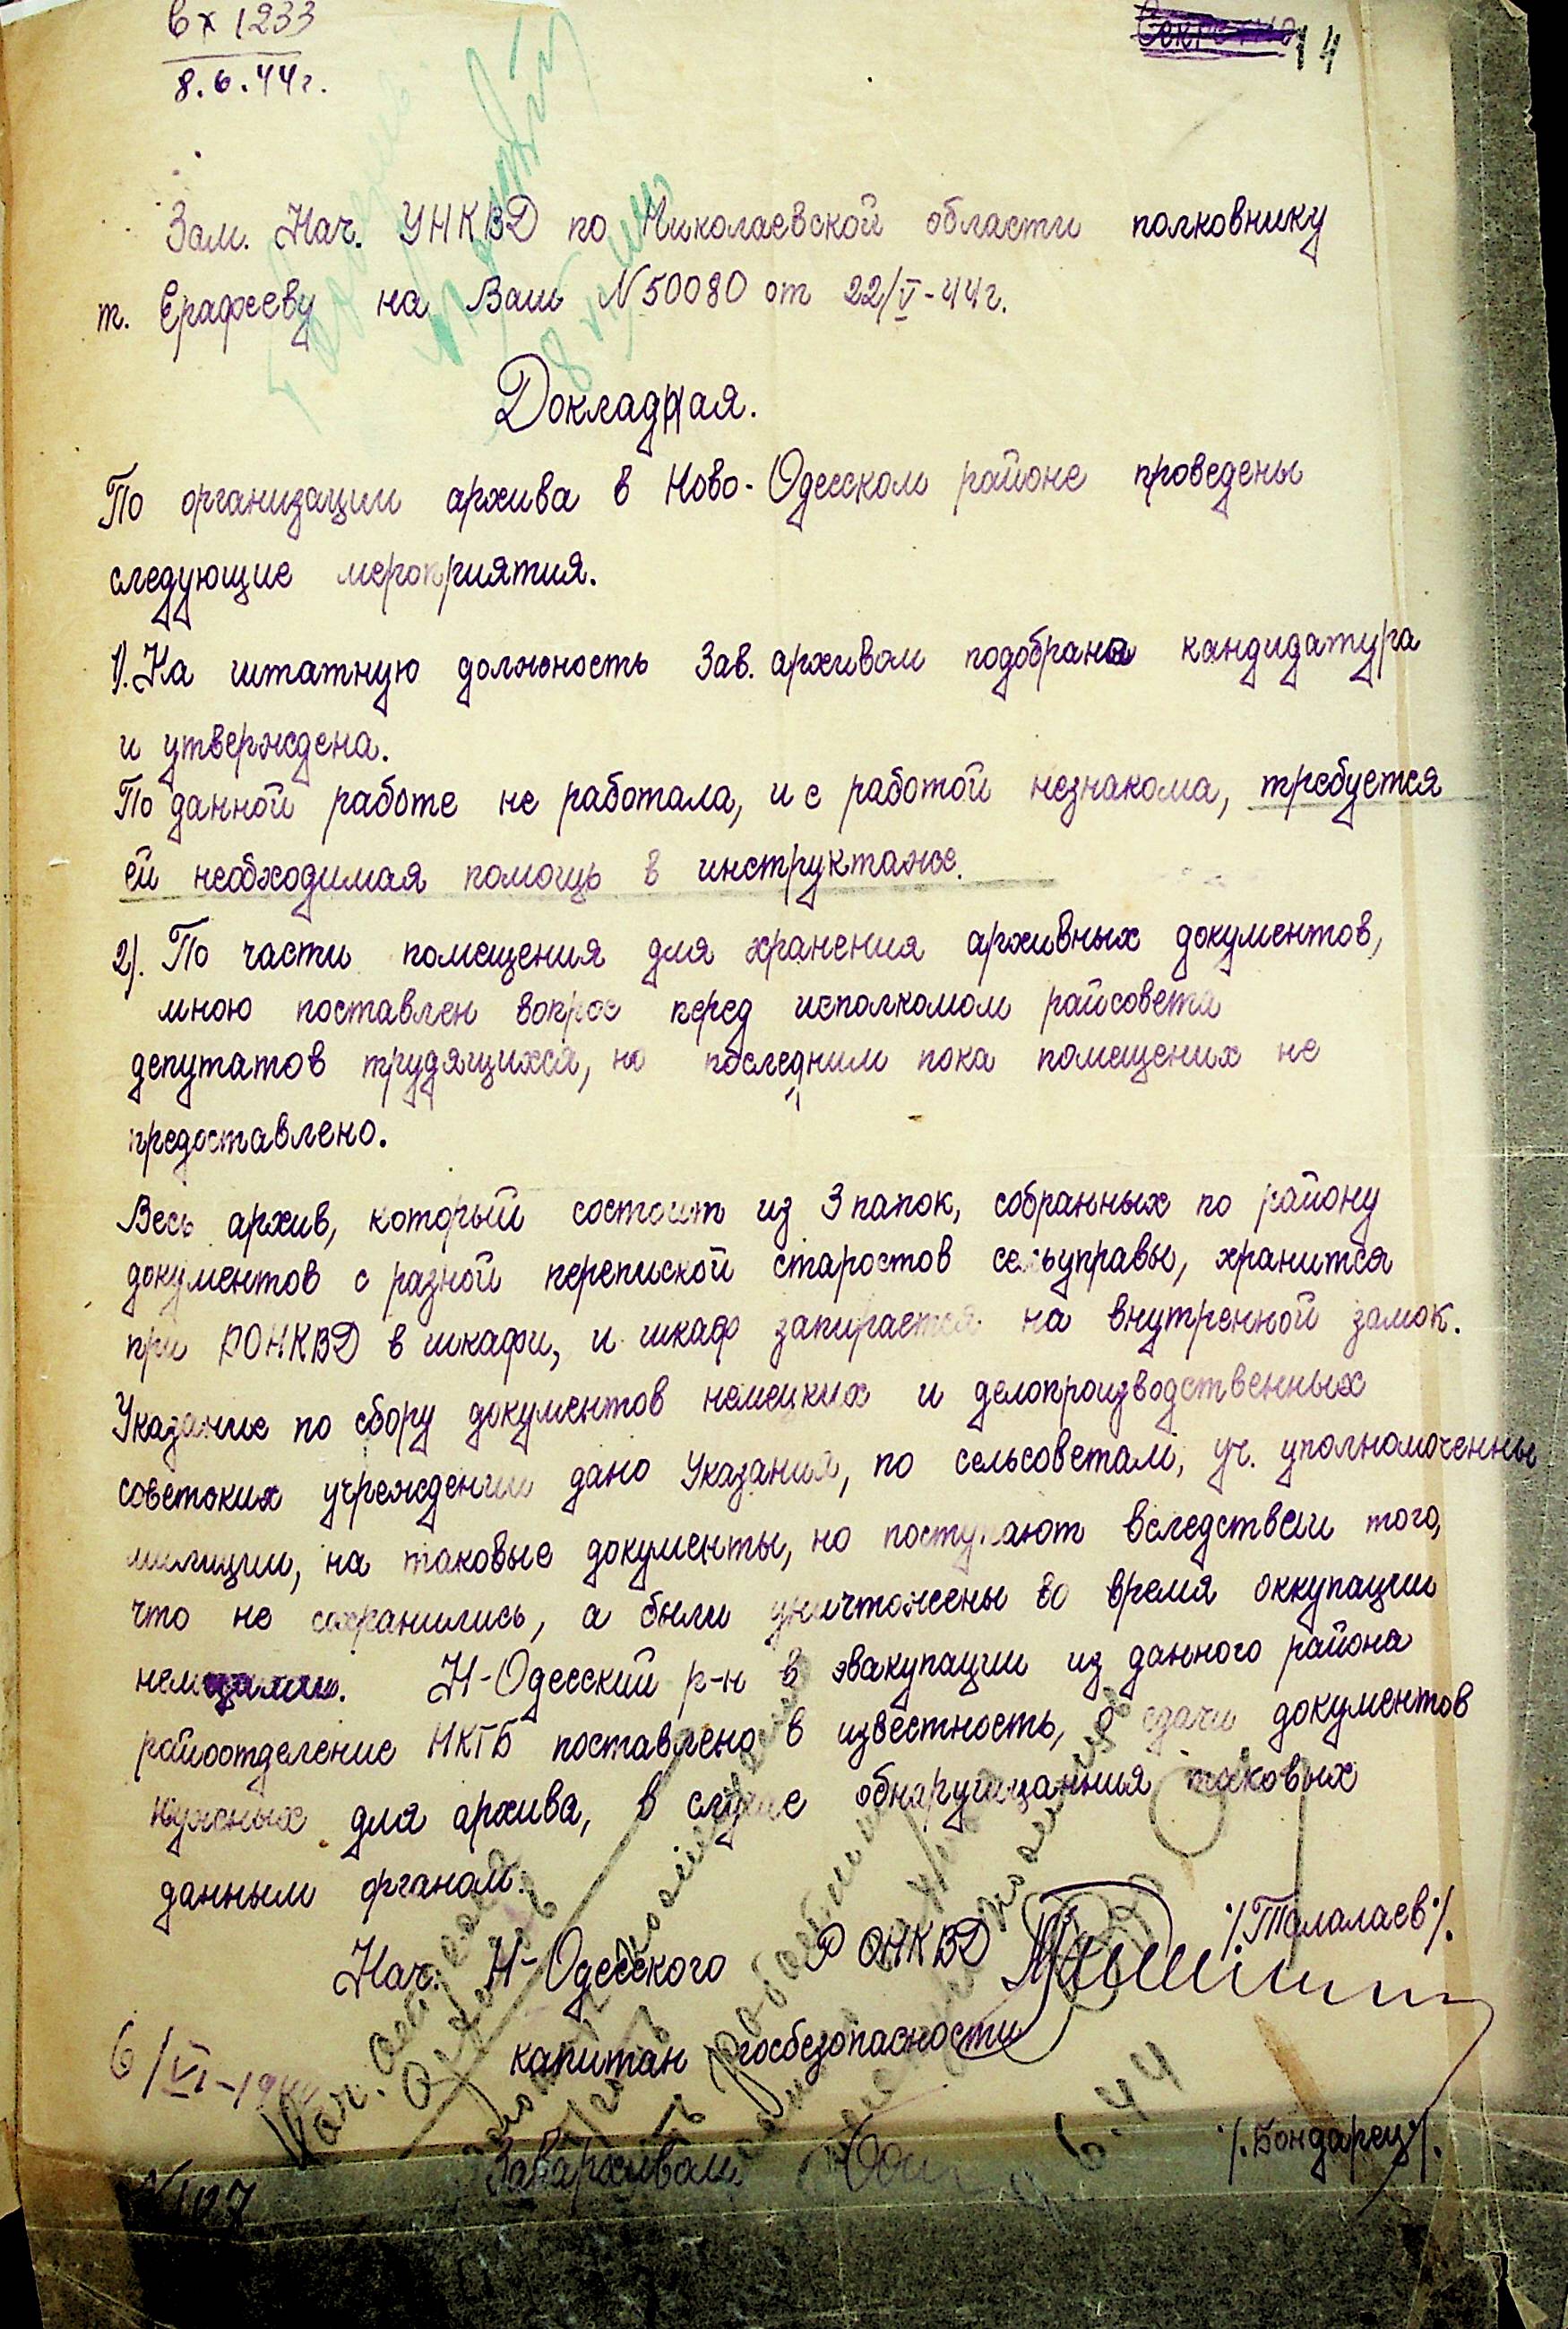 вх 1233
8.6.44г.
Секретно
14
Зам. Нач. УНКВД по Николаевской области полковнику
т. Ерафееву на Ваш N50080 от 22/V-44г.
Докладная.
По организации архива в Ново-Одесском районе проведены
следующие мероприятия.
1). На штатную должность Зав. архивом подобрана кандидатура
и утверждена.
По данной работе не работала, и с работой незнакома, требуется
ей необходимая помощь в инструктаже.
2). По части помещения для хранения архивных документов,
мною поставлен вопрос перед исполкомом райсовета
депутатов трудящихся, но последним пока помещених не
предоставлено.
Весь архив, который состоит из 3 папок, собранных по району
документов с разной перепиской старостов сельуправы, хранится
при РОНКВД в шкафи, и шкаф запирается на внутренной замок.
Указание по сбору документов немецких и делопроизводственных
советских учреждении дано Указания, по сельсоветам, уч. уполномоченны
милиции, на таковые документы, но поступают вследствеи того,
что не сохранились, а были уничтожены во время оккупации
немцами. Н-Одесский р-н в эвакупации из данного района
райоотделение НКГБ поставлено в известность, о сдачи документов
нужных для архива, в случае обнаружицанния таковых
данным органом.
Нач. Н-Одесского РОНКВД /.Талалаев/.
капитан госбезопасности
6/VI-194
Нач. отдела
9.6.44
Завархивом /.Бондарец/.
N 107